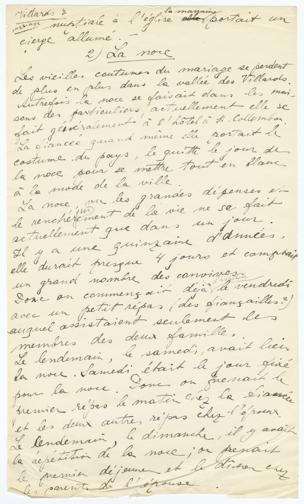 Villards 2
la marraine
nuptiale à l'église portait un
cierge allumé. -
2) La noce
Les vieilles coutumes du mariage se perdent
de plus en plus dans la vallée des Villards.
Autrefois la noce se faisait dans les mai-
sons des particuliers actuellement elle se
fait généralement à l'hôtel à St. Collomban.
La fiancée quand même elle portait le
costume du pays, le quitte le jour de
la noce pour se mettre tout en blanc
à la mode de la ville.
La noce vu les grandes dépenses et
le renchérissement de la vie ne se fait
actuellement que dans un jour.
Il y a une quinzaine d'années,
elle durait presque 4 jours et comptait
un grand nombre des convives.
Donc on commençait déjà le vendredi
avec un petit répas (des fiançailles?)
auquel assistaient seulement des
membres des deux famille.
Le lendemain, le samedi, avait lieu
la noce. Samedi était le jour fixé
pour la noce. Donc on prenait le
premier répas le matin chez la fiancée
et les deux autres répas chez l'époux
Le lendemain, le dimanche, il y avait
la répétition de la noce, on prenait
le premier déjeuner et le diner chez
les parents de l'épouse.